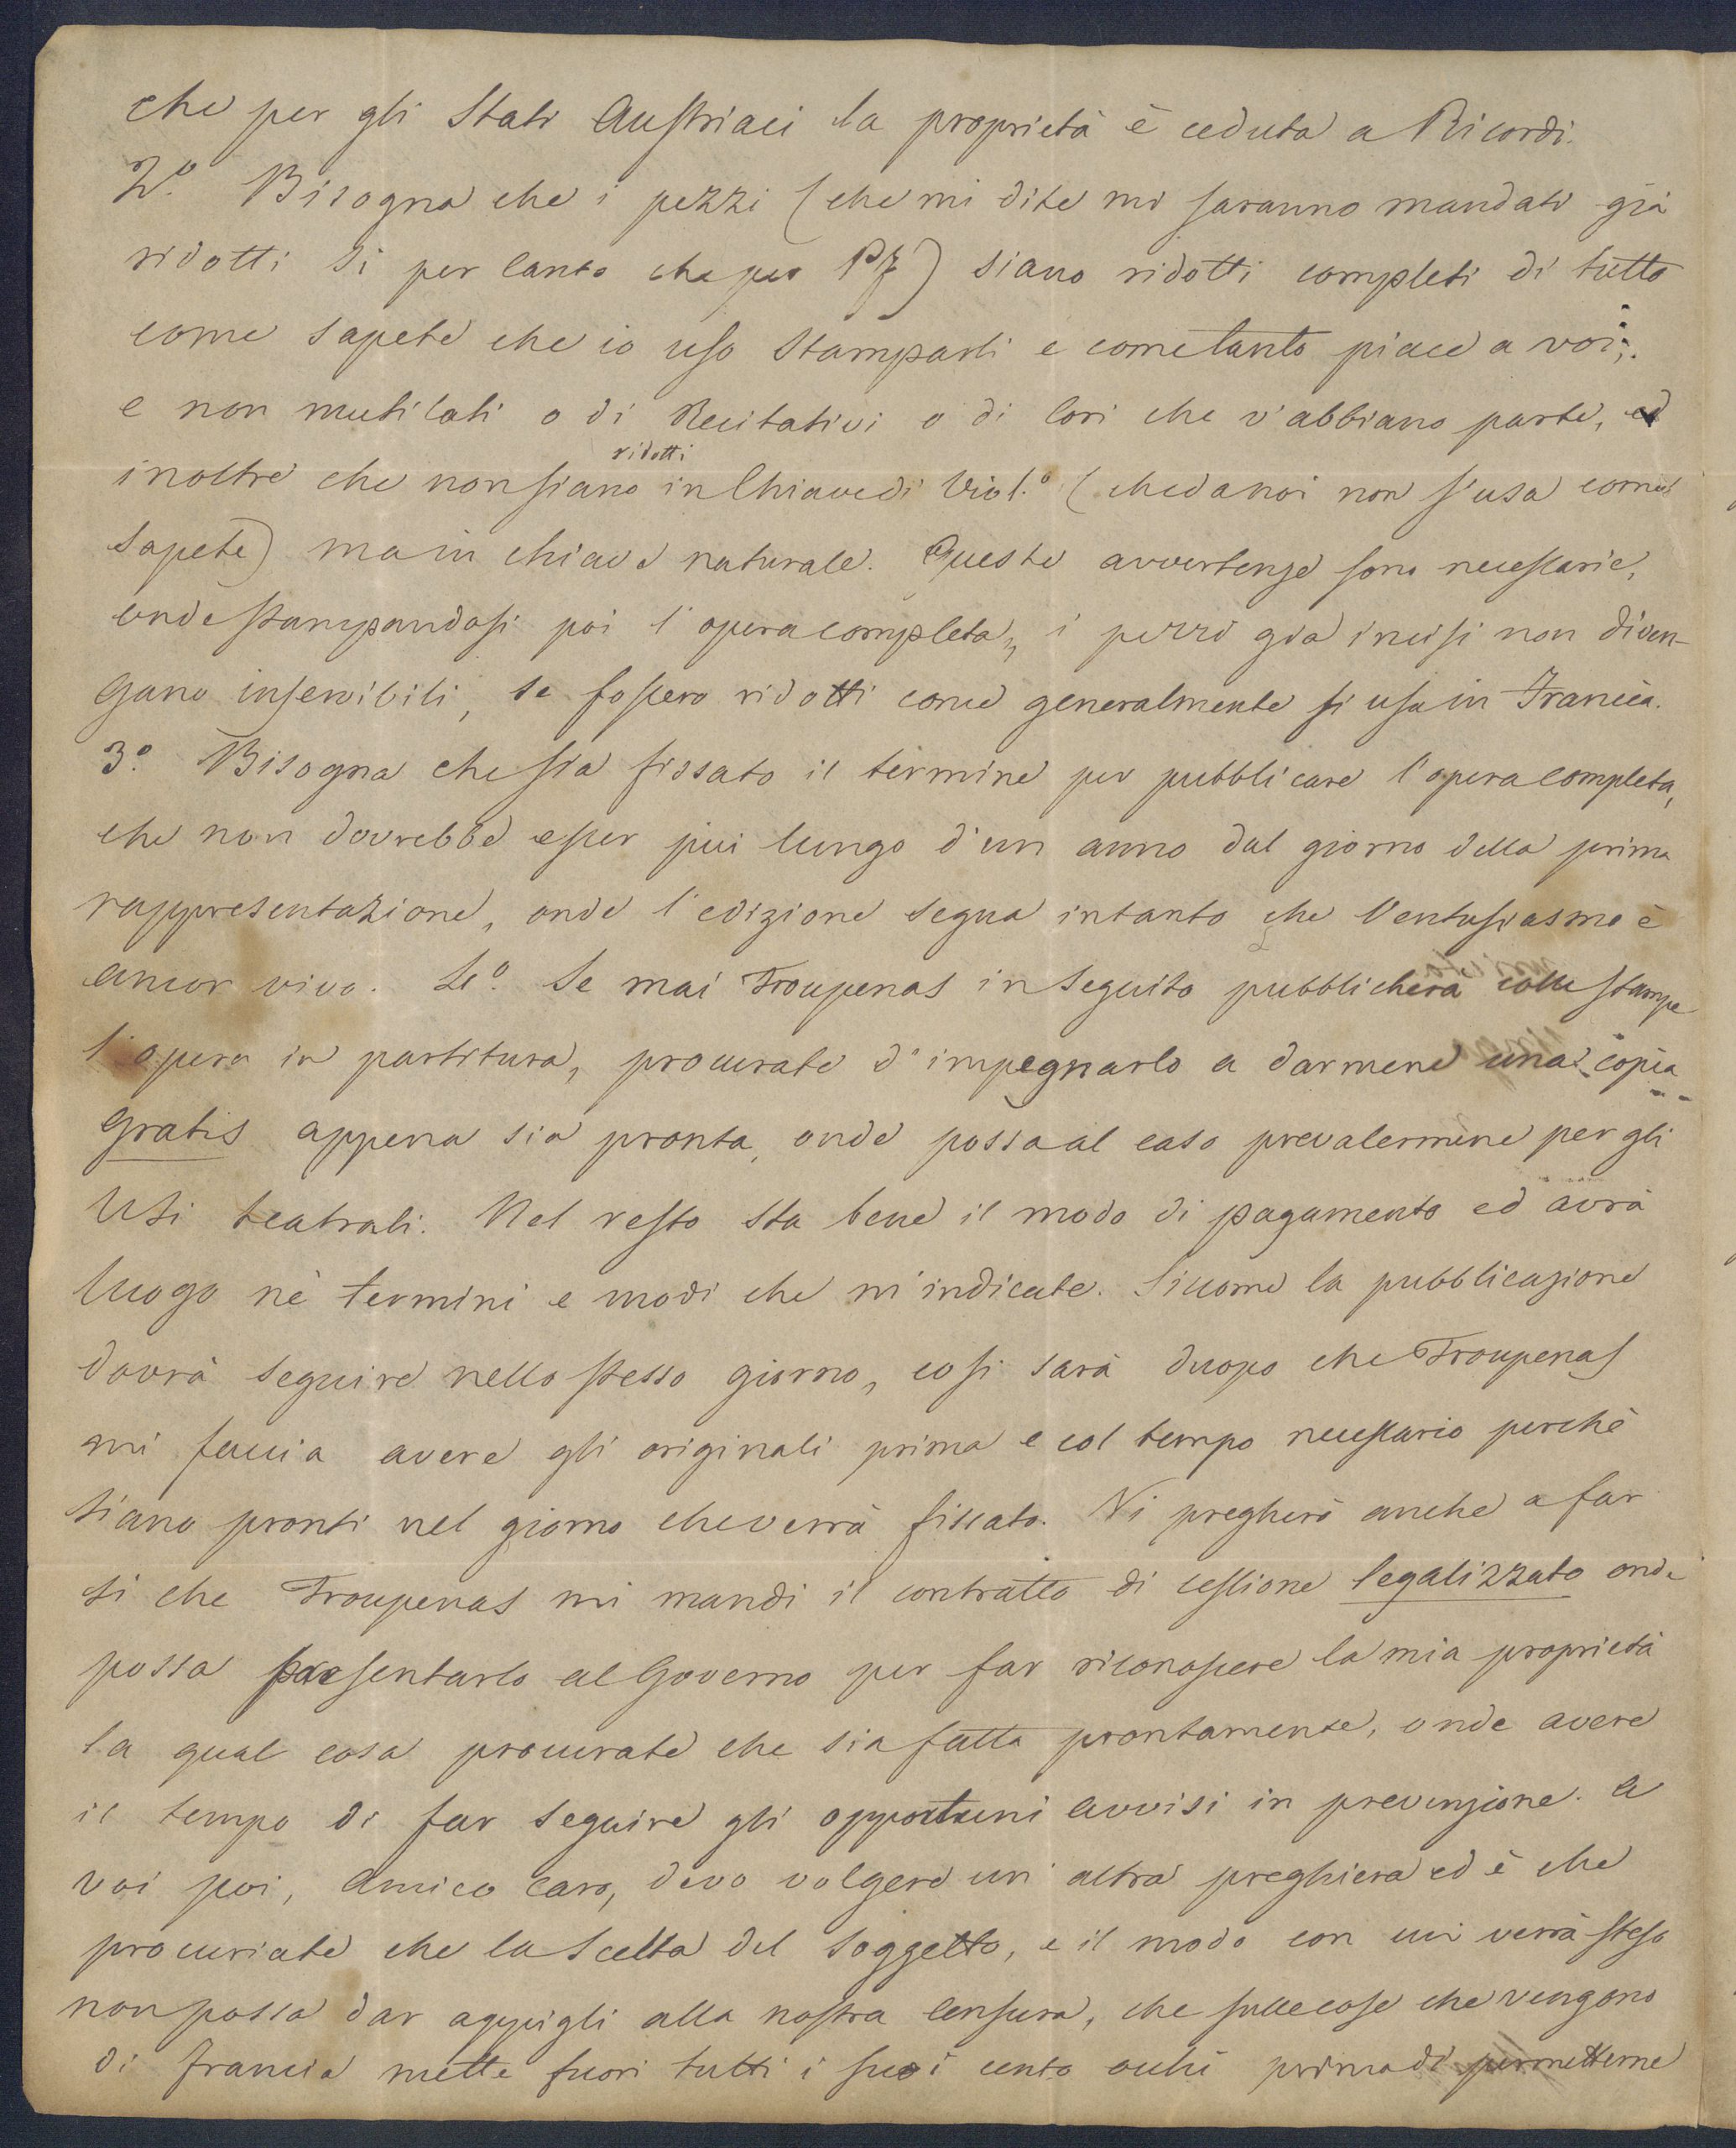 che per gli Stati Austriaci la proprietà è ceduta a Ricordi.
2.º Bisogna che i pezzi (che mi dite mi saranno mandati già
ridotti sì per canto che per Pf) siano ridotti completi di tutto
come sapete che io uso stamparli e come tanto piace a voi;
e non mutilati o di Recitativi o di Cori che v'abbiano parte, ed
inoltre che non siano ridotti in Chiave di Viol.º (che da noi non s'usa come
sapete) ma in chiave naturale. Queste avvertenze sono necessarie,
onde stampandosi poi l'opera completa, i pezzi già incisi non diven-
gano inservibili, se fossero ridotti come generalmente si usa in Francia.
3.º Bisogna che sia fissato il termine per pubblicare l'opera completa,
che non dovrebbe esser più lungo d'un anno dal giorno della prima
rappresentazione, onde l'edizione segua intanto che l'entusiasmo è
ancor vivo. 4.º Se mai Troupenas in seguito pubblicherà colle stampe
l'opera in partitura, procurate d'impegnarlo a darmene una copia
gratis appena sia pronta, onde possa al caso prevalermene per gli
usi teatrali. Nel resto sta bene il modo di pagamento ed avrà
luogo nè termini e modi che m'indicate. Siccome la pubblicazione
dovrà seguire nello stesso giorno, così sarà duopo che Troupenas
mi faccia avere gli originali prima e col tempo necessario perchè
siano pronti nel giorno che verrà fissato. Vi pregherò anche a far
sì che Troupenas mi mandi il contratto di cessione legalizzato onde
possa presentarlo al Governo per far riconoscere la mia proprietà
la qual cosa procurate che sia fatta prontamente, onde avere
il tempo di far seguire gli opportuni avvisi in prevenzione. A
voi poi, Amico caro, devo volgere un'altra preghiera ed è che
procuriate che la scelta del soggetto, e il modo con cui verrà steso
non possa dar appigli alla nostra Censura, che sulle cose che vengono
di Francia mette fuori tutti i suoi cento occhi prima di permetterne